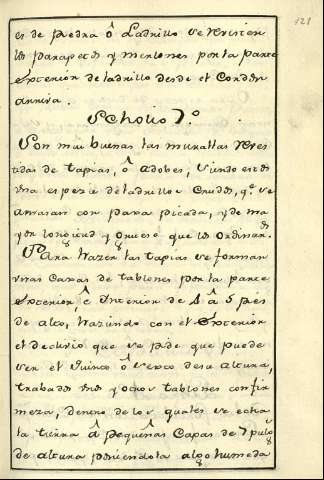 121
es de piedra ô Ladrillo se revisten
los parapetos y merlones por la parte
exterior de ladrillo desde el Cordon
arriva.
Scholio 7º
Son mui buenas las murallas reves
tidas de tapias, ô adobes, siendo estos
una especie de ladrillos Crudos, qº se
amasan con paxa picada, y de ma
yor longitud y grueso que los Ordinarˢ
Para hazer las tapias se forman
unas Caxas de tablones por la parte
exterior, ê Interior de 4 â 5 pies
de alto, haziendo con el Exterior
el declivio que se pide que puede
ser el Quinto ô sexto de su altura,
trabados unos y otros tablones con fir
meza, dentro de los quales se echa
la tierra â pequeñas Capas de 7 pulgˢ
de altura poniendola algo humeda